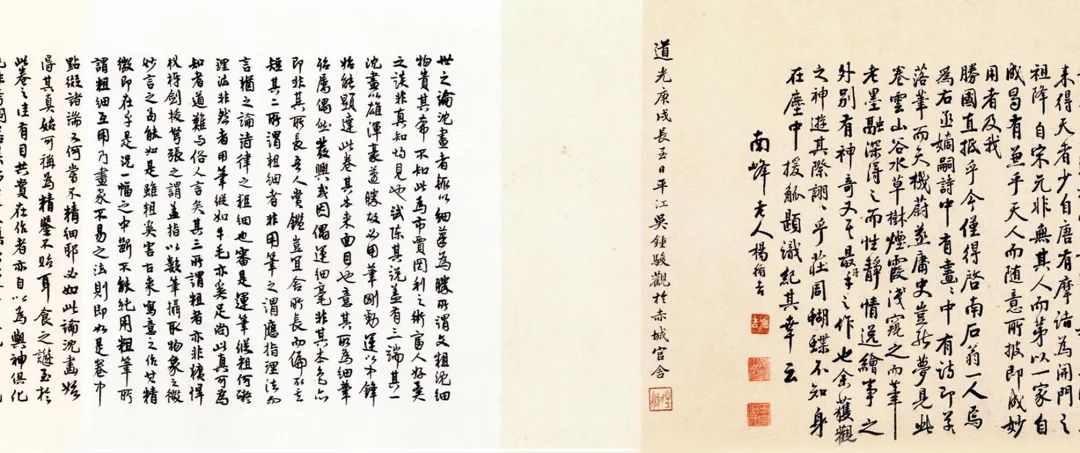 来得天者少自唐有摩诘為開門之
祖降自宋元非無其人而第以一家自
成曷有兼乎天人而随意所披即成妙
用者及我
勝國直抵乎今僅得啓南石翁一人焉
為右丞嫡嗣詩中有畫畫中有詩即其
落筆而天機蔚蒸庸史豈能夢見此
卷雲山谷水草樹煙霞浅窺之而筆
老墨融深得之而性静情逸繪事之
外别有神奇又平最平之作也余獲觀
之神遊其際詡詡乎莊周蝴蝶不知身
在塵中援觚題識紀其幸云
南峰老人楊循吉
道光庚戌長至日平江吴鍾駿觀於赤城官舍
世之論沈畫者輒以細筆為勝所謂文粗沈細
物貴其希不知此為市賈罔利之術富人好美
之談非真知灼見也試陳其説蓋有三端其一
沈畫以雄渾豪邁勝故必用筆剛勁運以中鋒
始能顯達此卷其本来面目也意其所為細筆
偶然發興或因偶運細毫非其本色亦
即非其所長吾人賞鑑豈宜舍所長而偏
短其二所謂粗細者非用筆之謂應指理法而
言猶之論詩律之粗細也審是運筆縱粗何礙
理法非然者用筆縱如牛毛亦奚足尚此真可為
知者道難與俗人言矣其三所謂粗者亦非獷悍
仅将劍拔弩張之謂蓋指以毅筆攝取物象之微
妙言之苟能如是雖粗奚害古来寫意之作其精
微即在乎是况一幅之中斷不能純用粗筆所
謂粗細互用乃畫家不易之法則即如是卷中
點綴諸端又何嘗不精細耶必如此論沈畫始
得其真始可稱為精鑒不始耳食之譏至於
此卷之佳有目共賞在作者亦自以為與神俱化